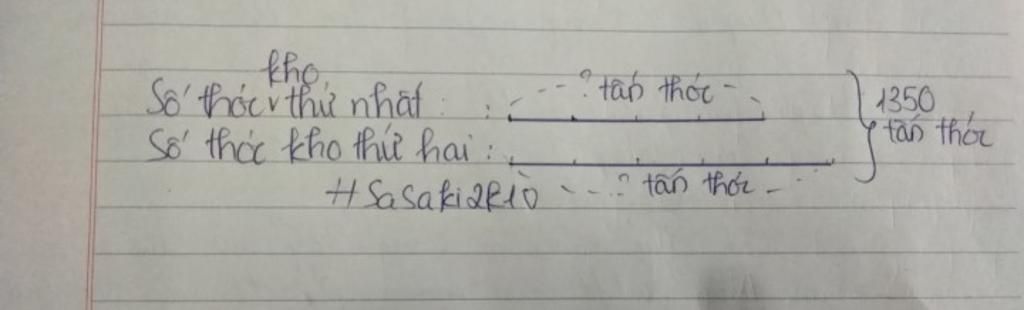 Số thóc kho thứ nhất : ? tấn thóc
Số thóc kho thứ hai : ? tấn thóc
1350
tấn thóc
#Sasaki2k10